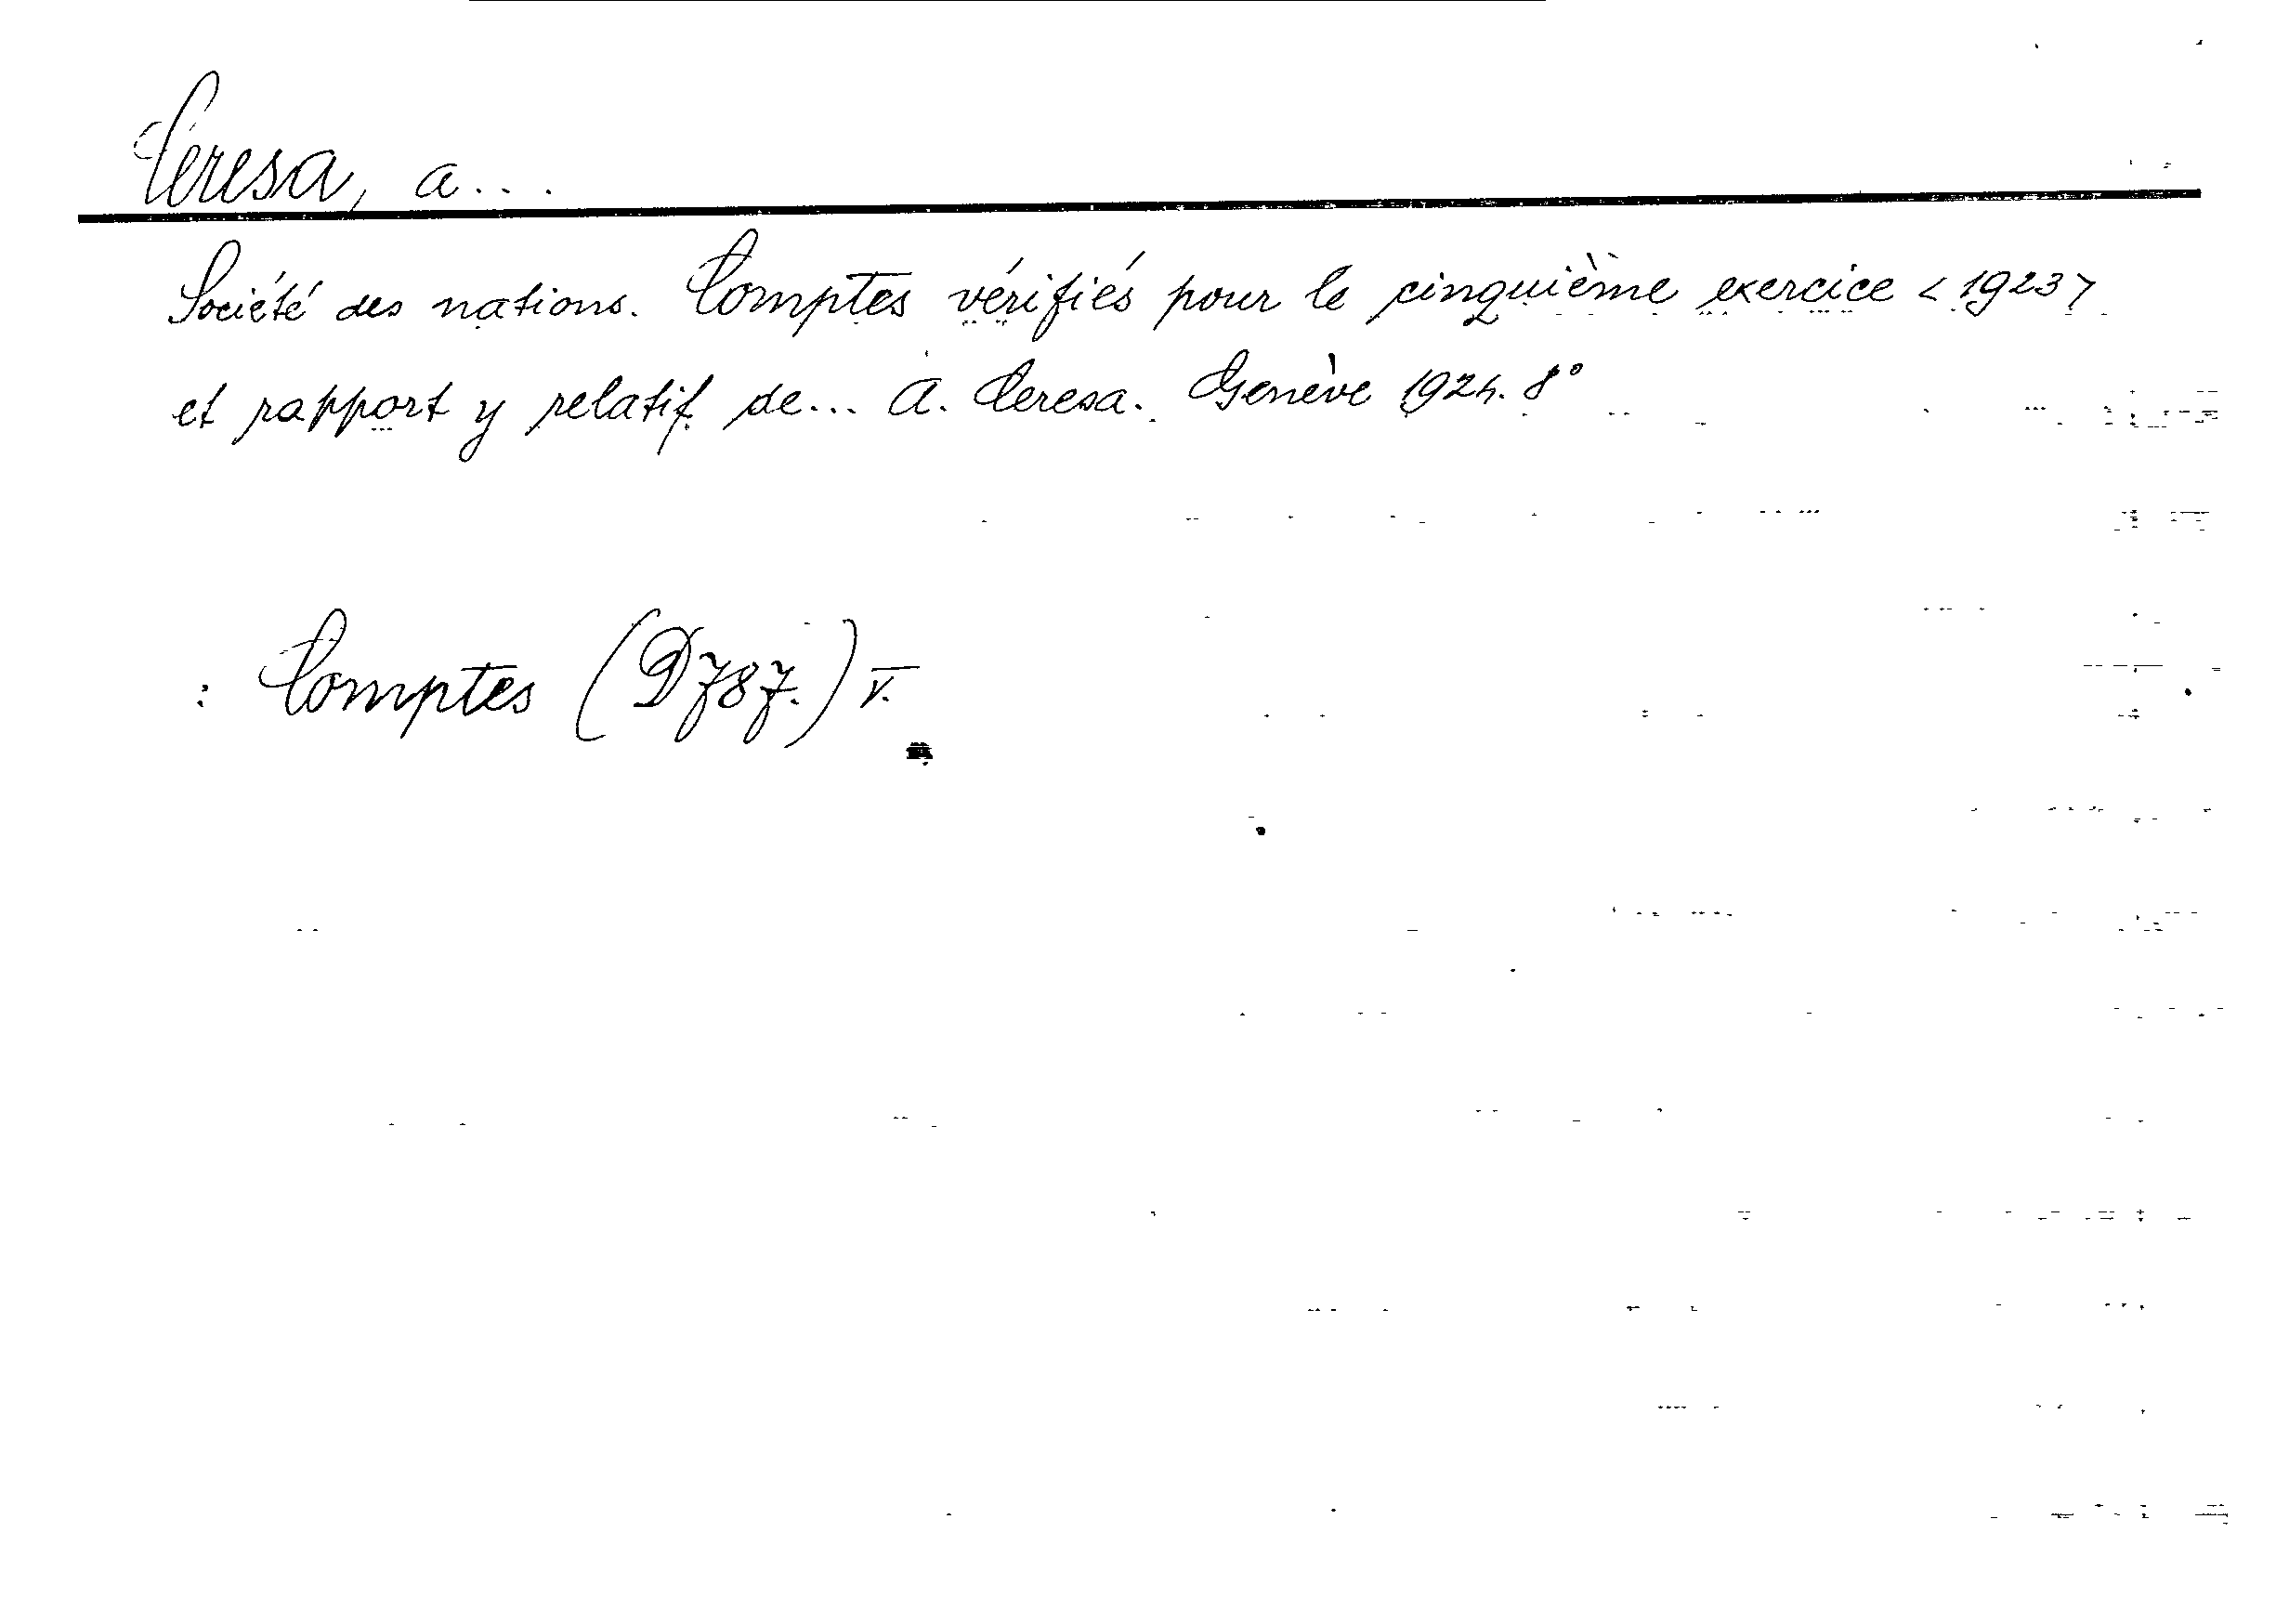 Ceresa, A...
Société des nations. Comptes vérifiés pour le cinquième exercice <1923>
et rapport y relatif de... A. Ceresa. Genève 1924. 8°
: Comptes (D787.) V.